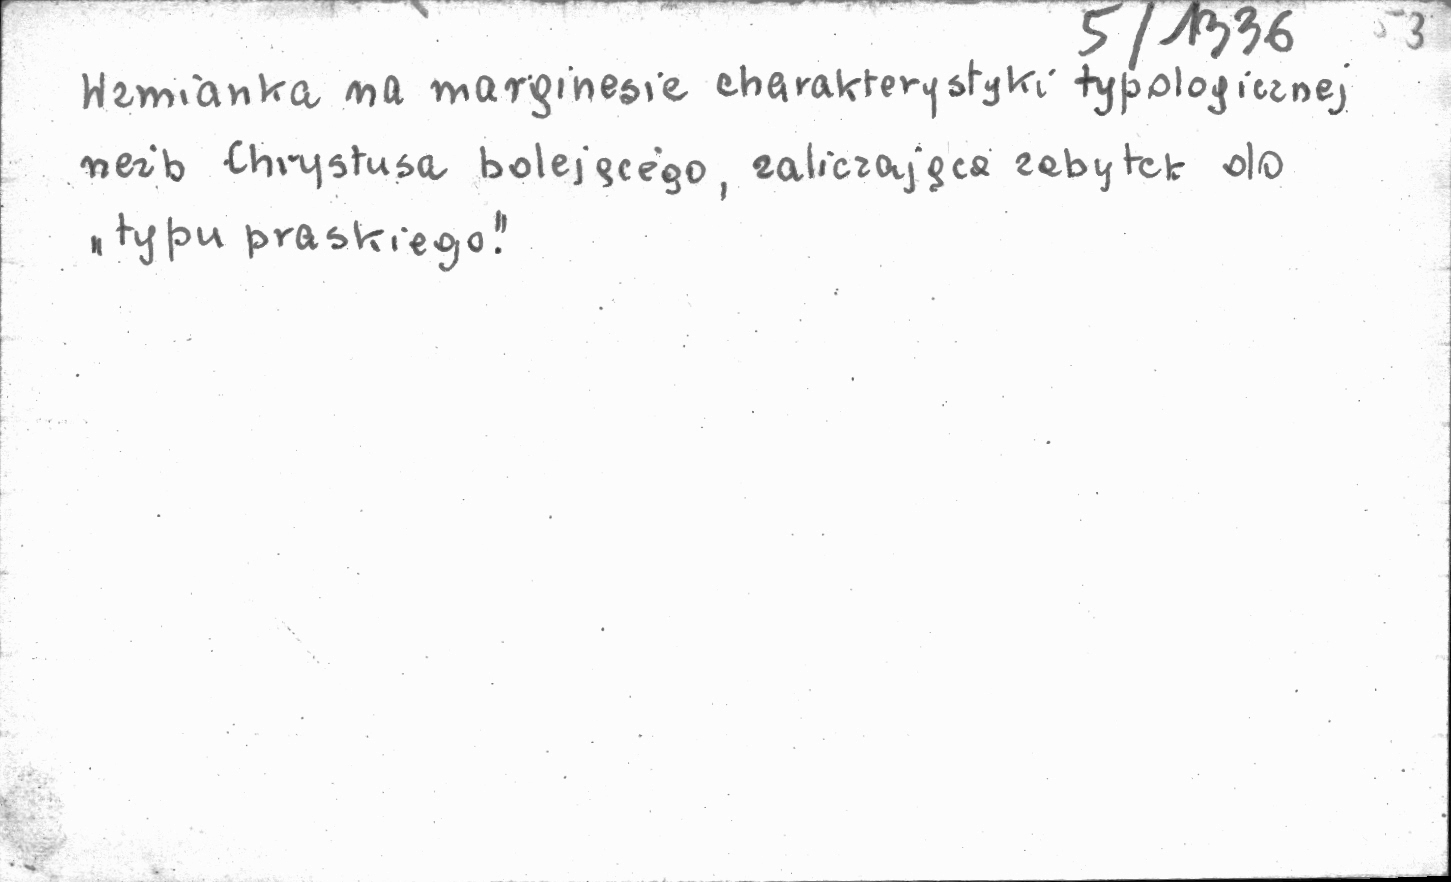 5/1336
Wzmianka na marginesie charakterystyki typologicznej
rzeźb Chrystusa bolejącego, zaliczająca zabytek do
„typu praskiego."